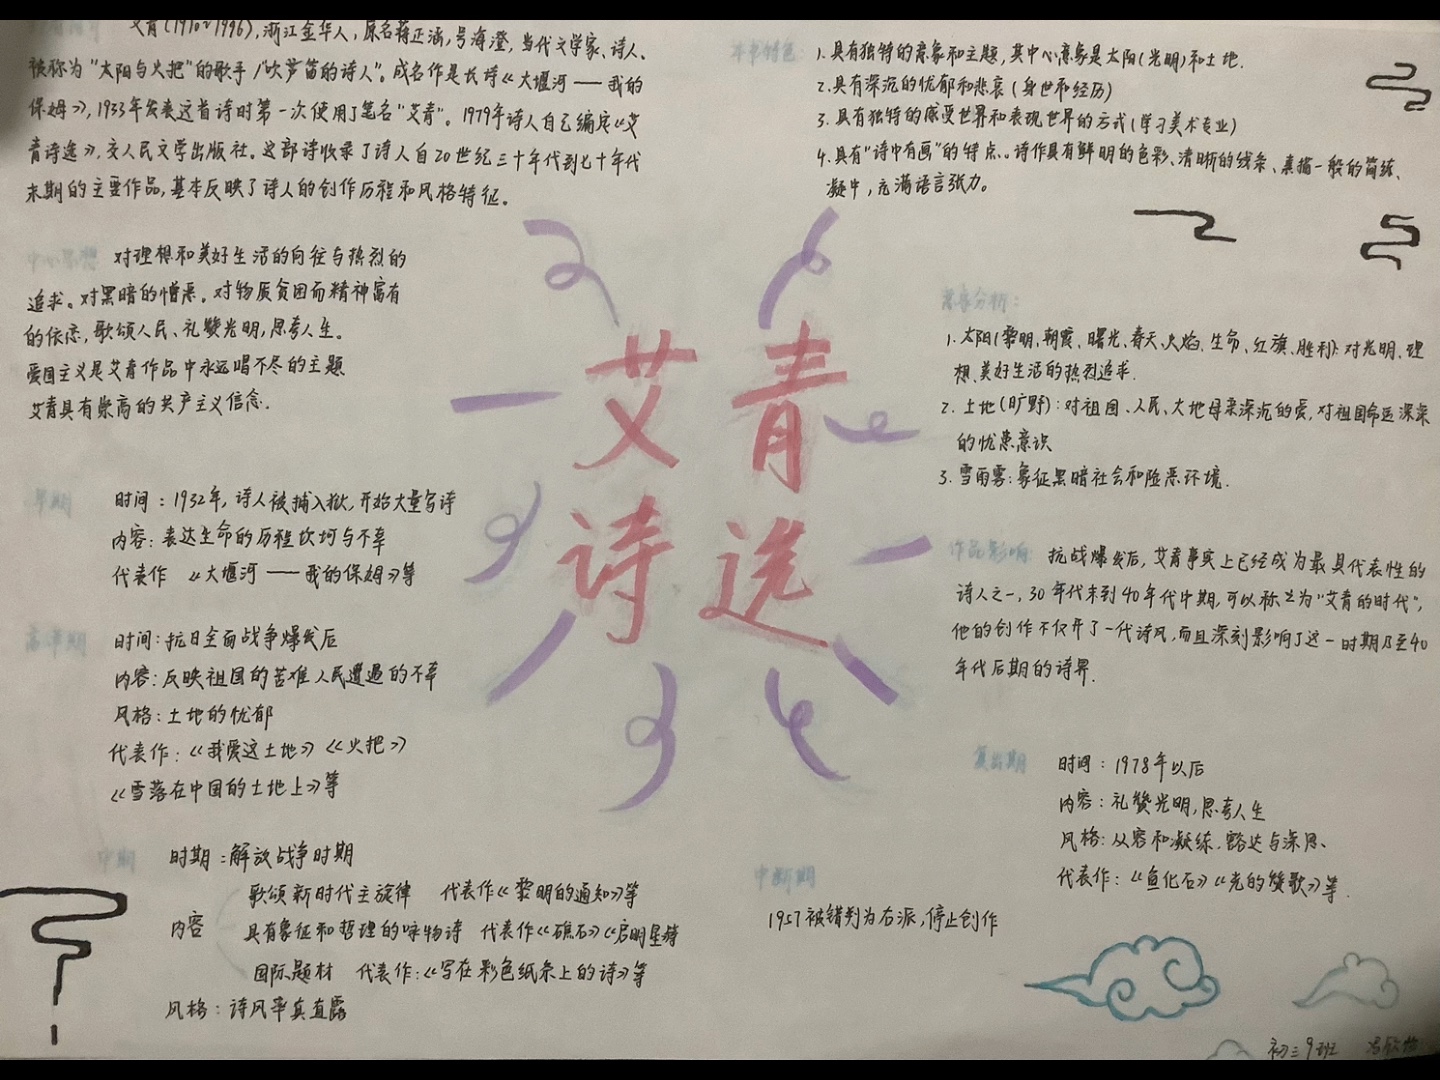 艾青(1910~1996),浙江金华人,原名蒋正涵,号海澄,当代文学家、诗人、
被称为“太阳与火把”的歌手/“吹芦笛的诗人”。成名作是长诗《大堰河——我的
保姆》,1933年发表这首诗时第一次使用了笔名“艾青”。1979年诗人自己编定《艾
青诗选》,交人民文学出版社。这部诗收录了诗人自20世纪三十年代到七十年代
末期的主要作品,基本反映了诗人的创作历程和风格特征。
中心思想 对理想和美好生活的向往与热烈的
追求。对黑暗的憎恶。对物质贫困而精神富有
的依恋,歌颂人民、礼赞光明,思考人生。
爱国主义是艾青作品中永远唱不尽的主题
艾青具有崇高的共产主义信念.
早期 时间:1932年,诗人被捕入狱,开始大量写诗
内容:表达生命的历程坎坷与不幸
代表作 《大堰河——我的保姆》等
高峰期 时间:抗日全面战争爆发后
内容:反映祖国的苦难人民遭遇的不幸
风格:土地的忧郁
代表作:《我爱这土地》《火把》
《雪落在中国的土地上》等
中期 时期:解放战争时期
歌颂新时代主旋律 代表作《黎明的通知》等
内容 具有象征和哲理的咏物诗 代表作《礁石》《启明星》等
国际题材 代表作:《写在彩色纸条上的诗》等
风格:诗风率真直露
艾青
诗选
本书特色 1.具有独特的意象和主题,其中心意象是太阳(光明)和土地.
2.具有深沉的忧郁和悲哀(身世和经历)
3.具有独特的感受世界和表现世界的方式(学习美术专业)
4.具有“诗中有画”的特点。诗作具有鲜明的色彩、清晰的线条、素描一般的简练、
凝中,充满语言张力。
意象分析:
1.太阳(黎明、朝霞、曙光、春天、火焰、生命、红旗、胜利):对光明、理
想、美好生活的热烈追求.
2.土地(旷野):对祖国、人民、大地母亲深沉的爱,对祖国命运深深
的忧患意识
3.雪雨雾:象征黑暗社会和险恶环境.
作品影响: 抗战爆发后,艾青事实上已经成为最具代表性的
诗人之一,30年代末到40年代中期,可以称之为“艾青的时代”,
他的创作不仅开了一代诗风,而且深刻影响了这一时期乃至40
年代后期的诗界.
复出期 时间:1978年以后
内容:礼赞光明,思考人生
风格:从容和凝练,豁达与深思、
代表作:《鱼化石》《光的赞歌》等.
中断期
1957被错判为右派,停止创作
初三9班